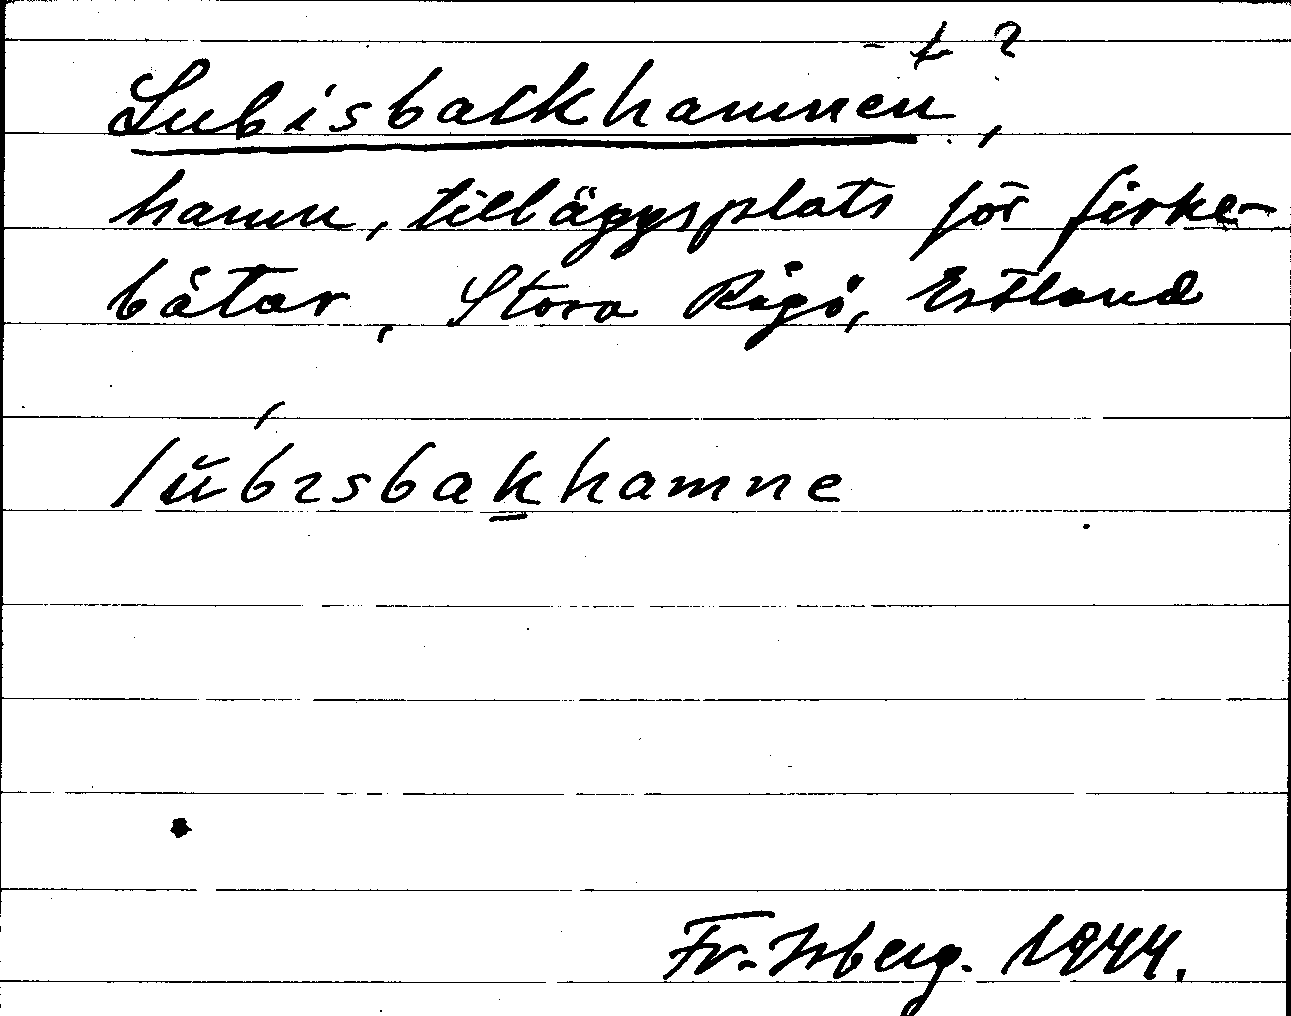 - t ?
Lubisbackhamnen,
hamn, tilläggsplats för fiske-
båtar, Stora Rågö, Estland
lŭ́bısbakhamne
Fr. Isberg. 1944.